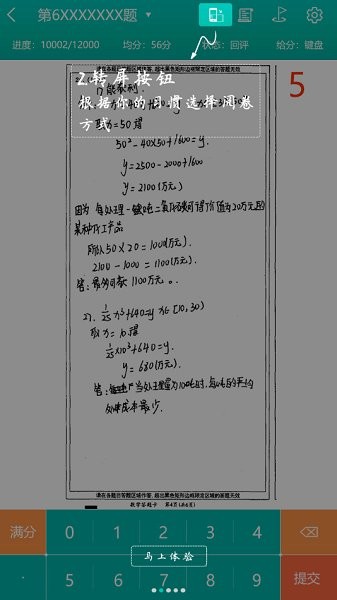 第6XXXXXXX题
进度：10002/12000 均分：56分 状态：回评 给分：键盘
请在各题目答题区域作答，超出黑色矩形边框限定区域的答题无效
2.转屏按钮
根据你的习惯选择阅卷
方式
5
取x=50得
50²-40×50+1600=y.
y=2500-2000+1600
y=2100(万元)
因为 每处理一吨二氧化碳可得价值为20万元的
某种化工产品
所以50×20=1000(万元).
2100-1000=1100(万元).
答：最多亏损1100万元。
2). 1/25 x³+640=y x∈[10,30)
取x=10得
1/25×10³+640=y.
y=680(万元).
请在各题目答题区域作答，超出黑色矩形边框限定区域的答题无效
数学答题卡 第4页(共6页)
满分 0 1 2 3 4
马上体验
. 5 6 7 8 9 提交